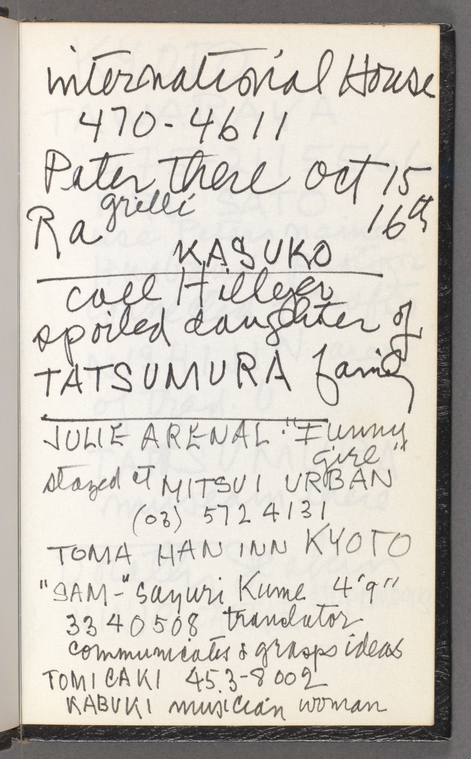 international House
470-4611
Peter there oct 15
grilli 16th
Ra
KASUKO
call Hillyer
spoiled daughter of
TATSUMURA family
JULIE ARENAL "Funny
girl"
stayed at MITSUI URBAN
(03) 572 4131
TOMA HAN INN KYOTO
"SAM-" Sayuri Kume 4'9"
3340508 translator
communicates & grasps ideas
TOMI CAKI 453-8002
KABUKI musician woman